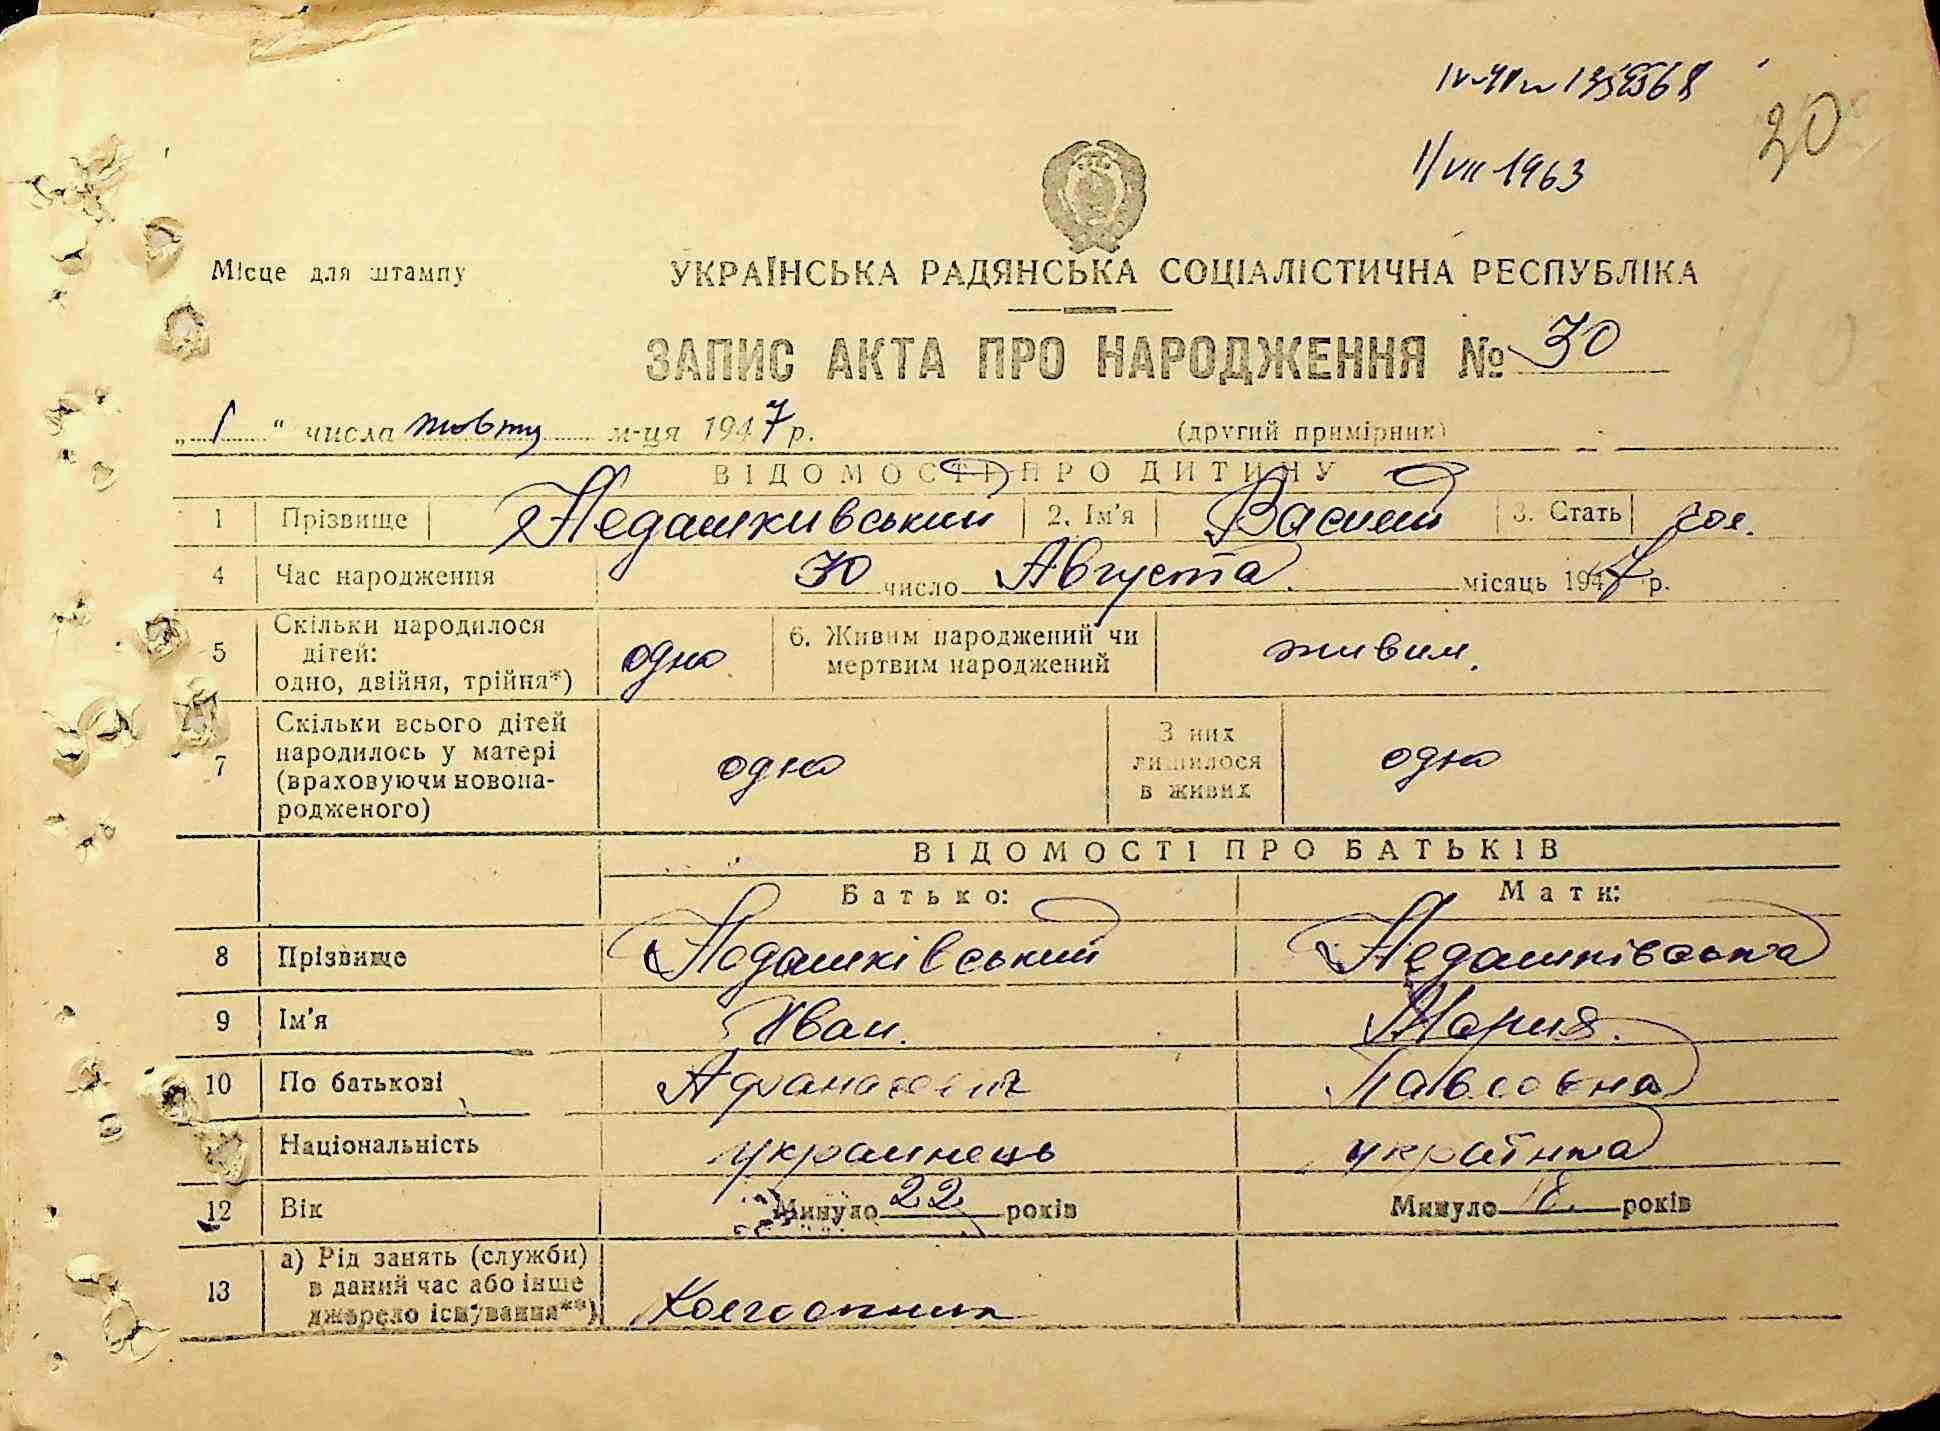 1/VII 1963
30
Місце для штампу
УКРАЇНСЬКА РАДЯНСЬКА СОЦІАЛІСТИЧНА РЕСПУБЛІКА
ЗАПИС АКТА ПРО НАРОДЖЕННЯ № 30
„ 1 “ числа жовтн м-ця 1947 р. (другий примірник)
ВІДОМОСТІ ПРО ДИТИНУ
1 Прізвище Недашкивський 2. Ім'я Василий 3. Стать чол.
4 Час народження 30 число Августа місяць 1947 р.
5 Скільки народилося дітей: одно, двійня, трійня*) одно 6. Живим народжений чи мертвим народжений живим.
7 Скільки всього дітей народилось у матері (враховуючи новона-родженого) одно З них лишилося в живих одно
ВІДОМОСТІ ПРО БАТЬКІВ
Батько: Мати:
8 Прізвище Недашківський Недашківська
9 Ім'я Иван. Мария.
10 По батькові Афанасович Павловна
Національність украинець українка
12 Вік Минуло 22 років Минуло 18 років
13 а) Рід занять (служби) в даний час або інше джерело існування**) Колгоспник